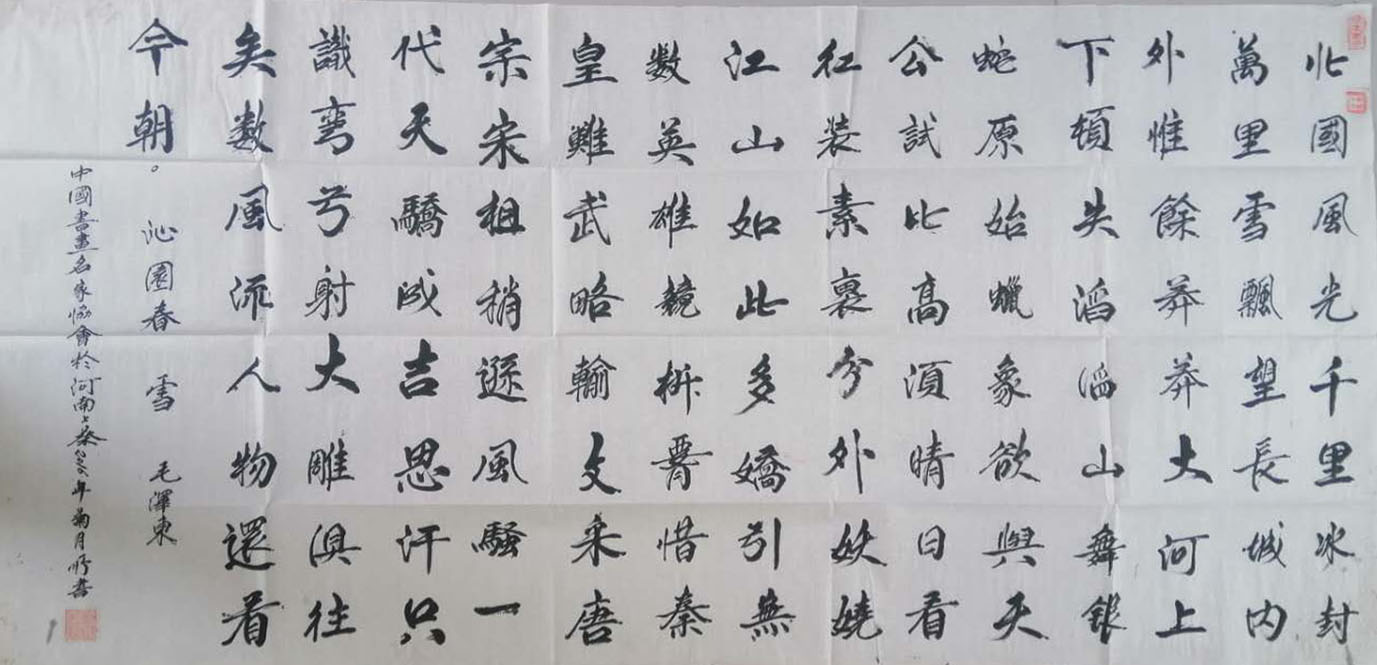 北國風光千里冰封
萬里雪飄望長城内
外惟餘莽莽大河上
下頓失滔滔山舞銀
蛇原始蠟象欲與天
公試比高須晴日看
红装素裹分外妖嬈
江山如此多嬌引無
數英雄競折腰惜秦
皇雖武略輸文采唐
宗宋祖稍遜風騷一
代天驕成吉思汗只
識彎弓射大雕俱往
矣數風流人物還看
今朝。
沁園春 雪 毛澤東
中國書畫名家協會於河南 年菊月 書